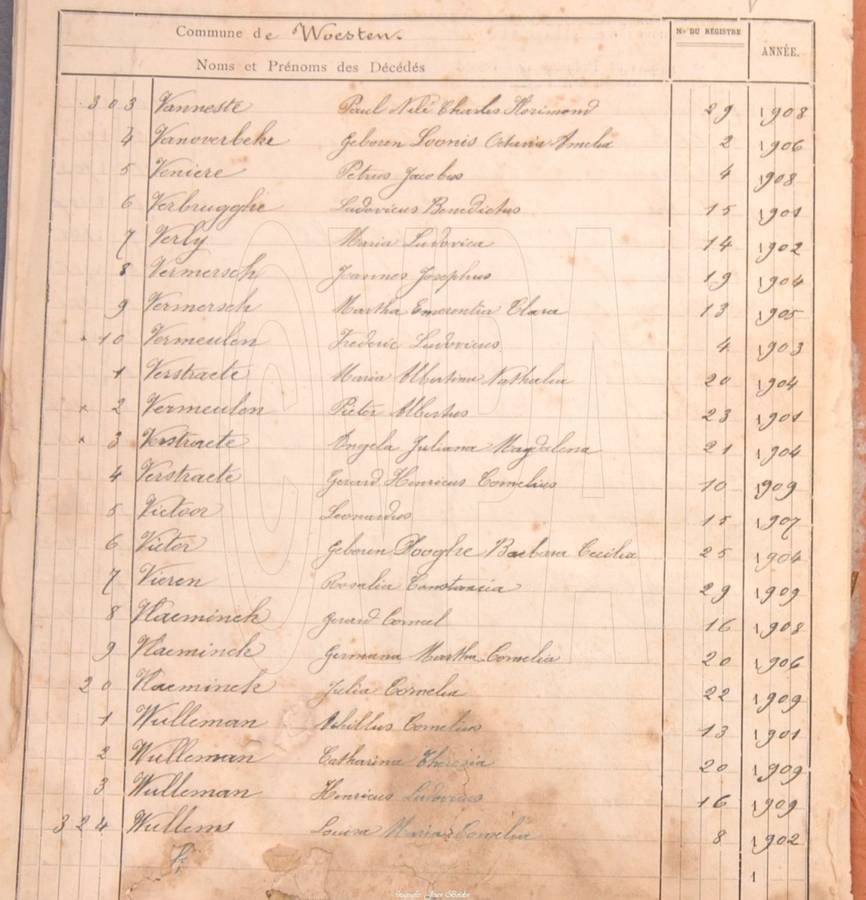 Commune de Woesten.
Noms et Prénoms des Décédés N° DU REGISTRE ANNÉE.
303 Vanneste Paul Charles Florimond 29 1908
4 Vanoverbeke geboren Loonis Octavia Amelia 2 1906
5 Veniere Petrus Jacobus 4 1908
6 Verbrugghe Ludovicus Benedictus 15 1901
7 Verly Maria Ludovica 14 1902
8 Vermersch Joannes Josephus 19 1904
9 Vermersch Martha Emerentia Clara 13 1905
10 Vermeulen Frederic Ludovicus 4 1903
1 Verstraete Maria Albertina Nathalia 20 1904
x 2 Vermeulen Pieter Albertus 23 1901
x 3 Verstraete Angela Juliana Magdalena 21 1904
4 Verstraete Gerard Henricus Cornelius 10 1909
5 Victoor Leonardus 15 1907
6 Victor geboren Dooghe Barbara Cecilia 25 1904
7 Vieren Rosalia Constancia 29 1909
8 Vlaeminck Gerard Corneel 16 1908
9 Vlaeminck Germana Martha Cornelia 20 1906
20 Vlaeminck Julia Cornelia 22 1909
1 Wulleman Achillus Cornelius 13 1901
2 Wulleman Catharina Theresia 20 1909
3 Wulleman Henricus Ludovicus 16 1909
324 Wullems Louisa Maria Cornelia 8 1902
1
CVPA